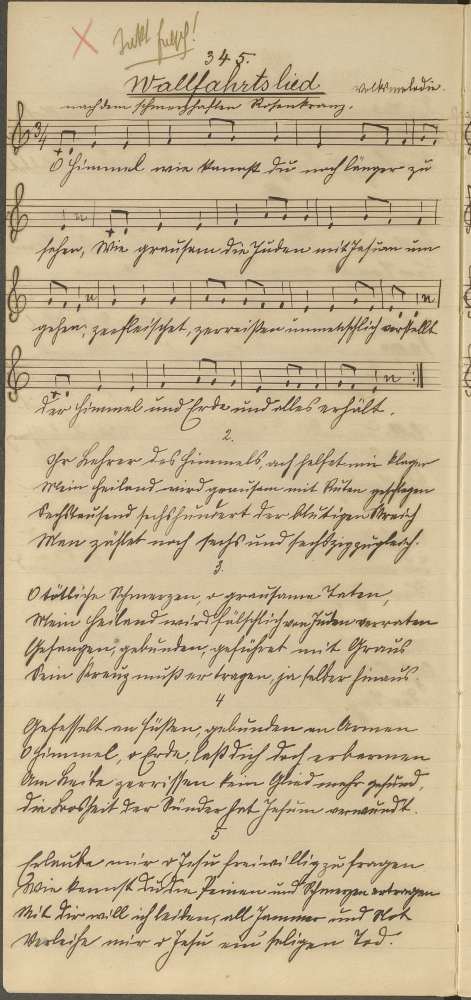 Takt falsch!
345.
Wallfahrtslied
Volksmelodie.
nach dem schmerzhaften Rosenkranz.
3/4
O Himmel wie kannst du noch länger zu
sehen, Wie grausam die Juden mit Jesum um
gehen, zerfleischet, zerreißen unmenschlich verstellt
der Himmel und Erde und alles erhält.
2.
Ihr Lehrer des Himmels, ach helfet mir klagen
Mein Heiland wird grausam mit Ruten geschlagen
Sechstausend sechshundert der blutigen Streich
Man zählet noch sechs und sechszig zugleich.
3.
O tötliche Schmerzen, o grausame Taten,
Mein Heiland wird fälschlich von Juden verraten
Gefangen, gebunden, geführet mit Graus
Sein Kreuz muß er tragen, ja selber hinaus.
4
Gefesselt an Füßen, gebunden an Armen
O Himmel, o Erde, laß dich doch erbarmen
Am Leibe zerrissen kein Glied mehr gesund,
die Bosheit der Sünder hat Jesum verwundt.
5
Erlaube mir o Jesu freiwillig zu fragen
Wie kannst du die Peinen und Schmerzen ertragen
Mit dir will ich leiden, all Jammer und Not
Verleihe mir o Jesu ein seligen Tod.